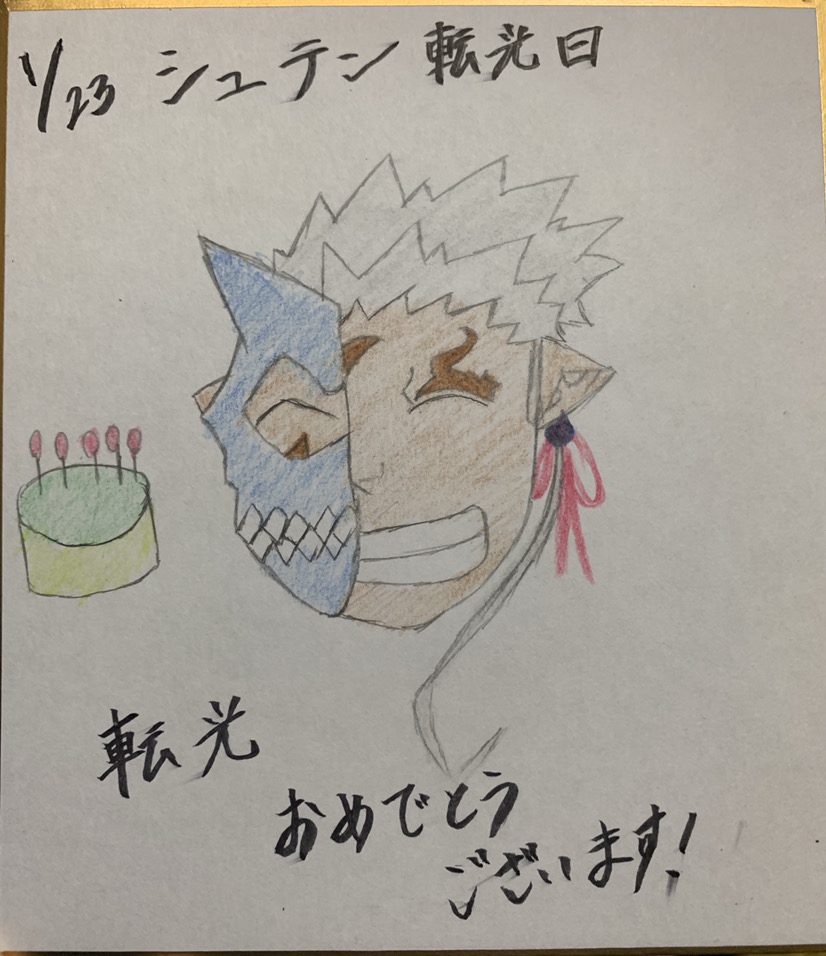 1/23 シュテン 転光日
転光
おめでとう
ございます!